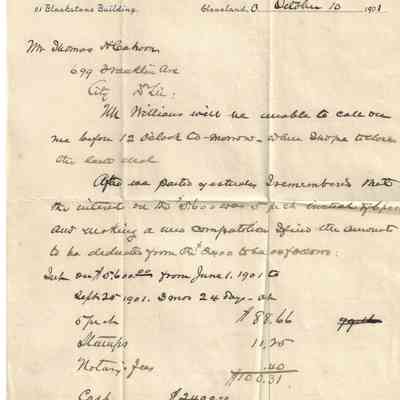 21 Blackstone Building.
Cleveland, O. October 10 1901
Mr Thomas H Cahoon
699 Franklin Ave
City Dr Sir:
Mr Williams will be unable to call on
me before 12 Oclock to-morrow - when I hope to close
the land deal
After we parted yesterday I remembered that
the interest on the $5600 was 5 pr ct instead of 6 pr ct
and making a new computation I find the amount
to be deducted from the $2400 to be as follows:
Int on $5600.00 from June 1, 1901 to
Sept 25 1901. 3 mos 24 days - at
5 pr ct $88.66
Stamps 11.25
Notary's Fees .40
$100.31
Cash $2400.00